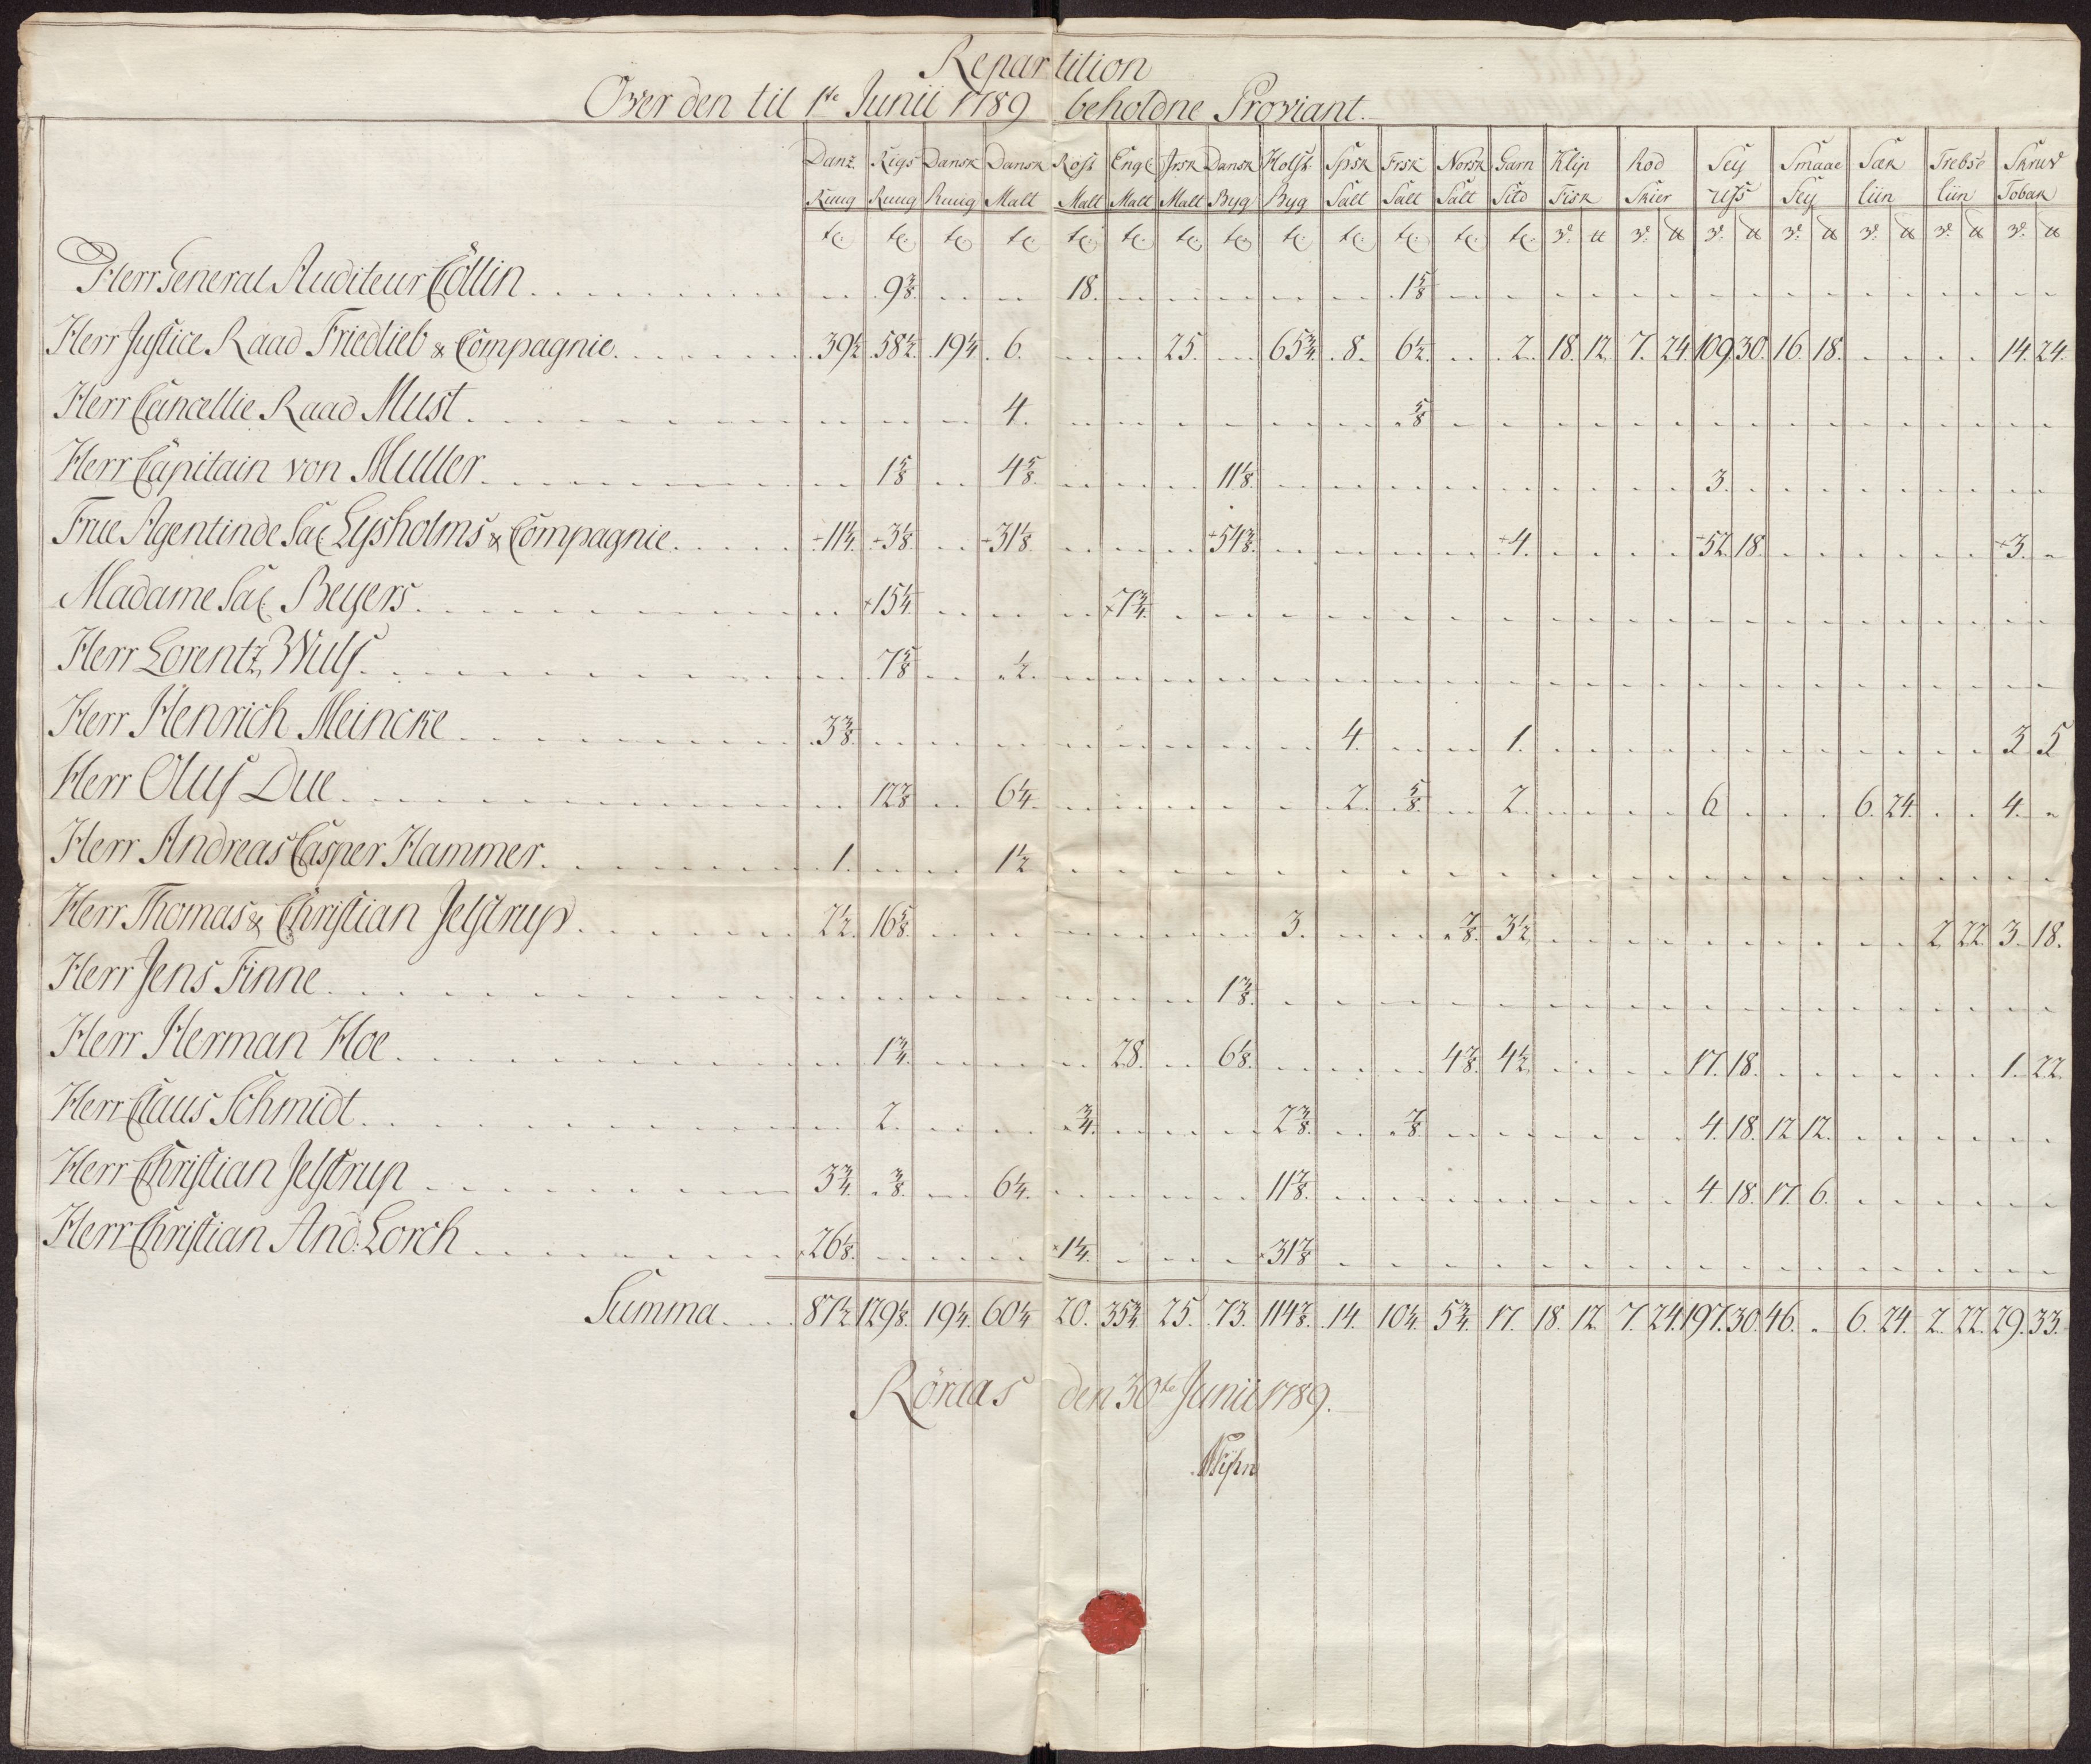 Repartition
Over den til 1ste Junii 1789 beholdne Proviant.
Danz Rigs Dansk Dansk Rost Engl Irsk Dansk Holst Spsk Frsk Norsk Garn Klip Rod Sey Smaae Sæk Trebse Skruv
Ruug Ruug Ruug Malt Malt Malt Malt Byg Byg Salt Salt Salt Sild Fisk Skier Ufs Sey liin liin Tobak
Herr General Auditeur Collin 9 3/8. 18. 1 5/8
Herr Justice Raad Friedlieb & Compagnie. 39 1/2 58 1/2. 19 1/4 6. 25. 65 3/4. 8. 6 1/2. 2. 18. 12. 7. 24. 109. 30. 16. 18. 14. 24.
Herr Cancellie Raad Must. 4. 5/8
Herr Capitain von Muller. 1 5/8 4 5/8. 11 1/8. 3.
Frue Agentinde Sal Lysholms & Compagnie. 11 1/4. 3 1/8. 31 1/8. 54 3/8. 4. 52. 18. 3.
Madame Sal Beyers. 15 1/4. 7 3/4.
Herr Lorentz Wulf. 7 5/8 1/2.
Herr Henrich Meincke 3 3/8. 4. 1. 3 5
Herr Oluf Due. 12 7/8 6 1/4. 2. 5/8. 2. 6 6. 24. 4.
Herr Andreas Casper Hammer. 1. 1 1/2
Herr Thomas & Christian Jelstrup. 2 1/2. 16 5/8. 3. 7/8. 3 1/2 2 22. 3. 18.
Herr Jens Finne. 1 3/8.
Herr Herman Hoe. 1 3/4. 28. 6 1/8. 4 7/8. 4 1/2 17. 18. 1. 22.
Herr Claus Schmidt. 2. 3/4. 2 3/8. 7/8. 4. 18. 12 12.
Herr Christian Jelstrup 3 3/4. 3/8. 6 1/4. 11 7/8. 4 18. 17. 6.
Herr Christian And: Lorch 26 1/8. 1 1/4. 31 7/8
Summa. 87 1/2 129 1/8. 19 1/4. 60 1/4 20. 35 3/4 25. 73. 114 7/8. 14. 10 1/4. 5 3/4. 17. 18. 12 7. 24. 197. 30. 46. 6. 24. 2. 22. 29. 33.
Röraas den 30te Junii 1789.